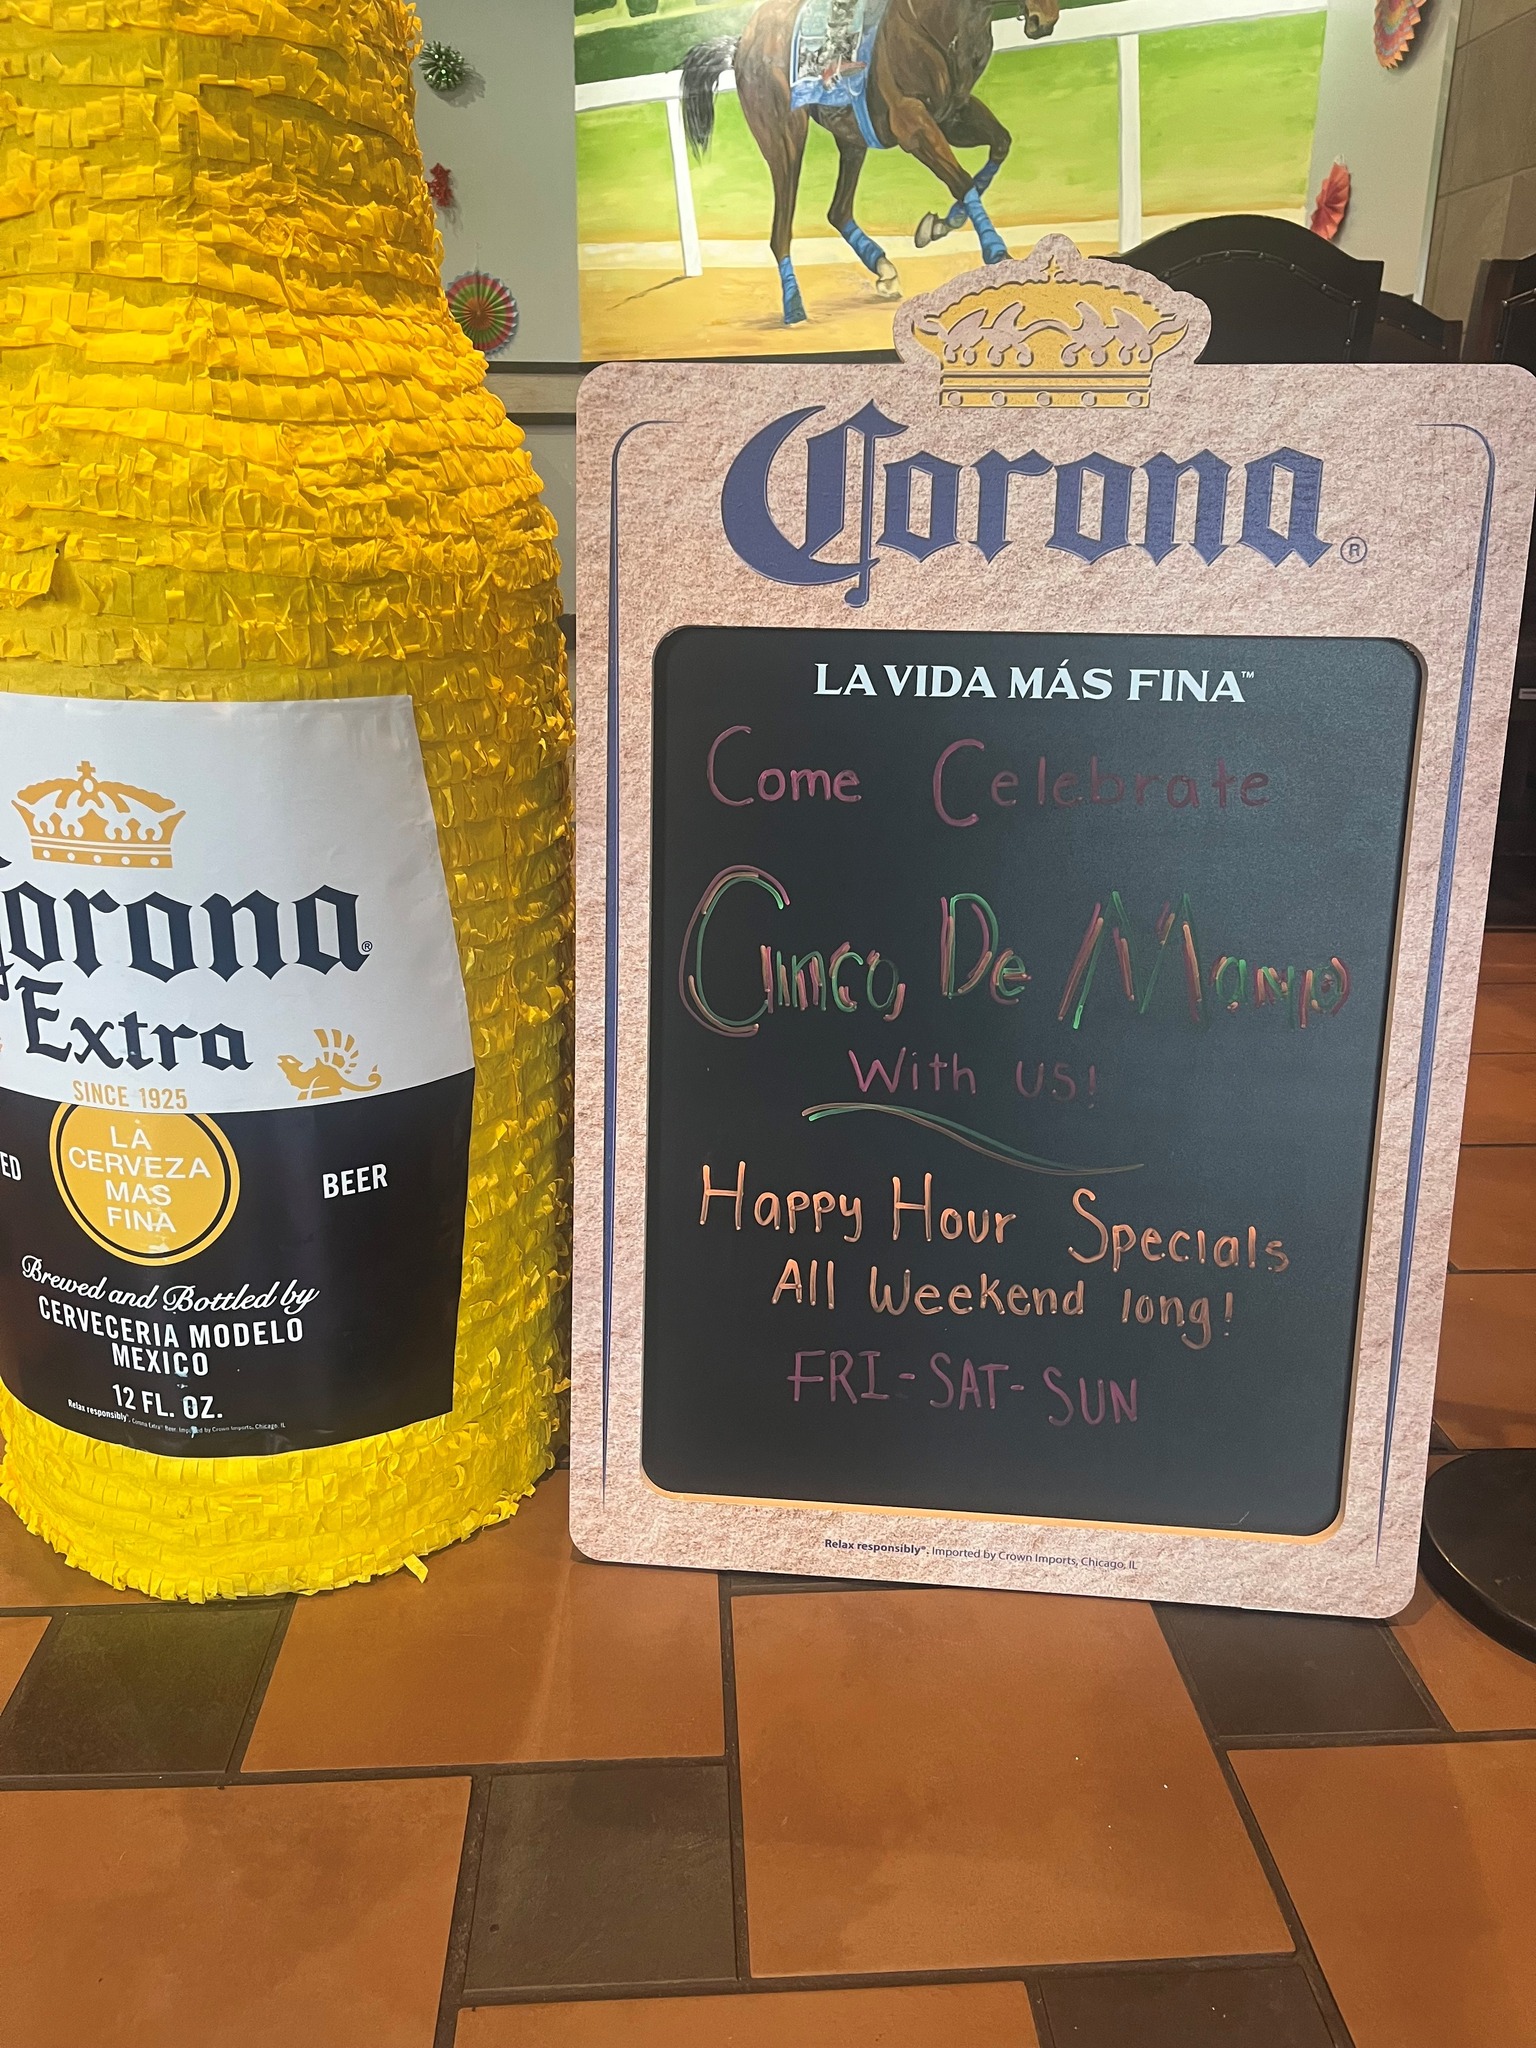 Corona®
LA VIDA MÁS FINA™
Come Celebrate
Cinco De Mayo
With us!
Happy Hour Specials
All Weekend long!
FRI-SAT-SUN
Relax responsibly®. Imported by Crown Imports, Chicago, IL
Corona®
Extra
SINCE 1925
LA
CERVEZA
MAS
FINA
BEER
Brewed and Bottled by
CERVECERIA MODELO
MEXICO
12 FL. OZ.
Relax responsibly®. Corona Extra® Beer. Imported by Crown Imports, Chicago, IL